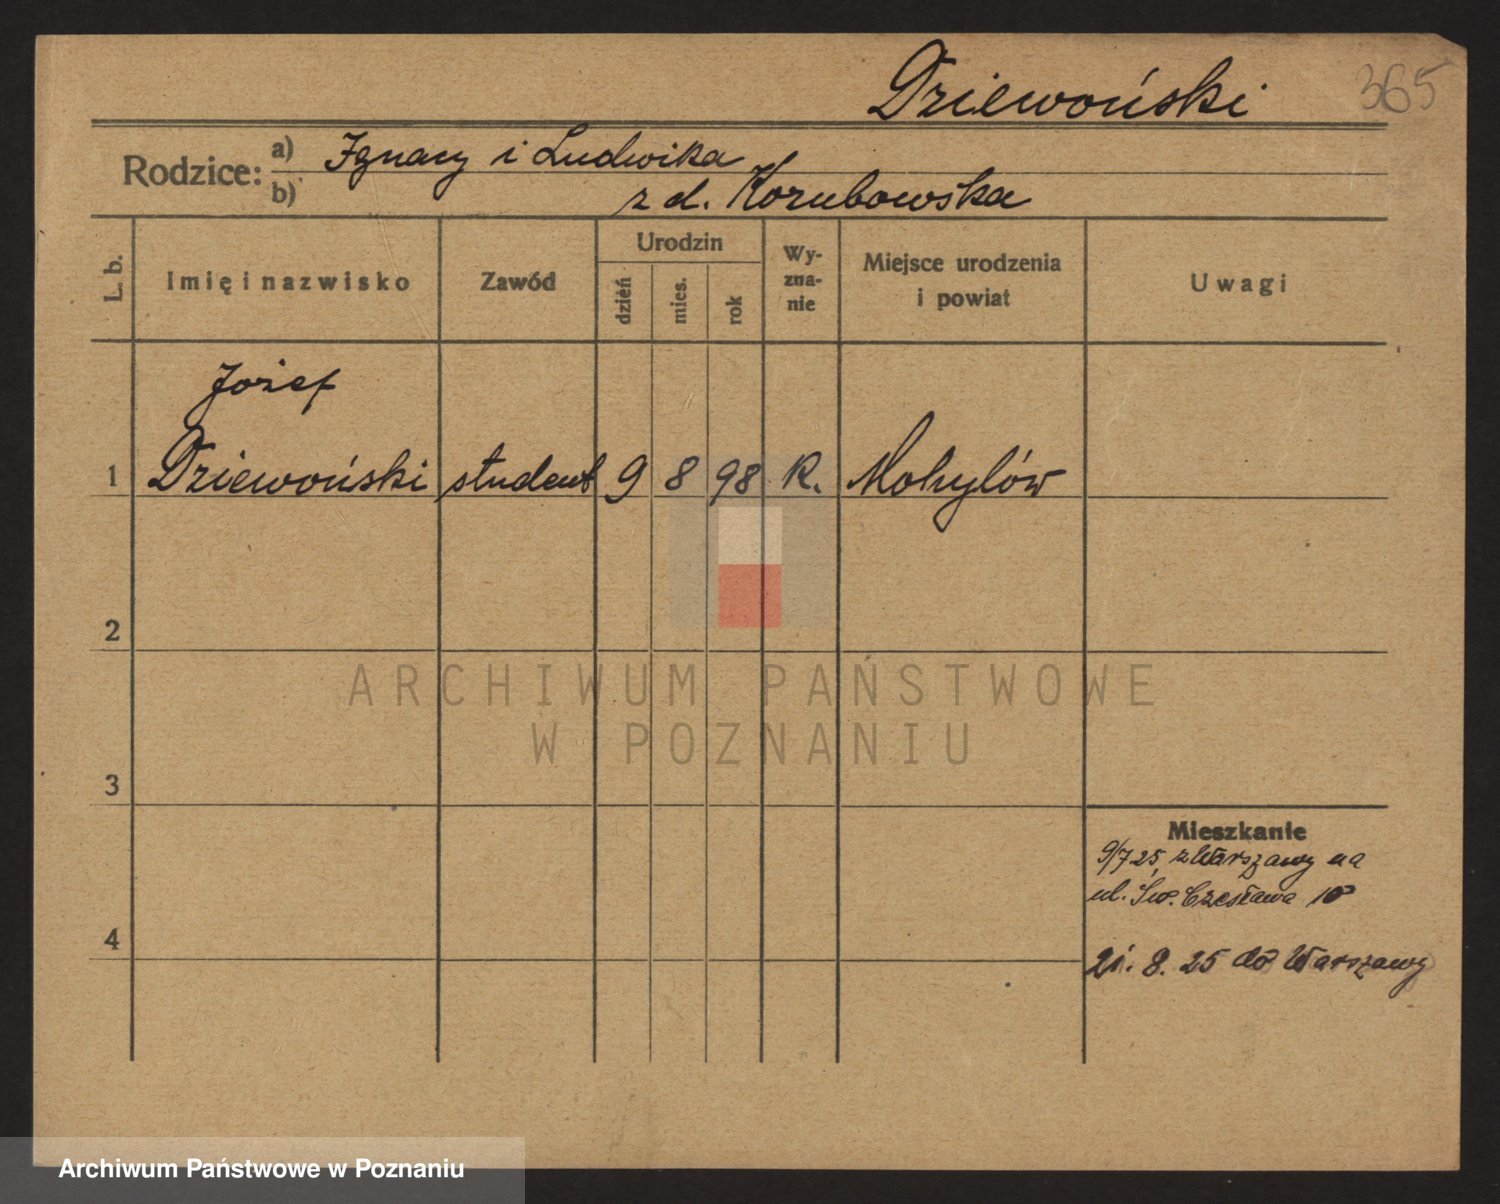 Dziewoński 365
Rodzice: a) Ignacy i Ludwika
b) z d. Korubowska
L. b. Imię i nazwisko Zawód Urodzin dzień mies. rok Wy-zna-nie Miejsce urodzenia i powiat Uwagi
Józef
1 Dziewoński student 9 8 98 R. Mohylów
2
ARCHIWUM PAŃSTWOWE
W POZNANIU
3
Mieszkanie
9/7 25, z Warszawy na
ul. Św. Czesława 10
4
21. 8. 25 do Warszawy
Archiwum Państwowe w Poznaniu